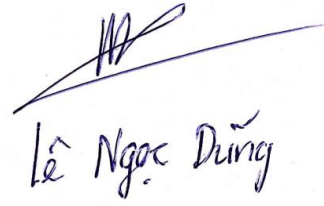 Lê Ngọc Dũng